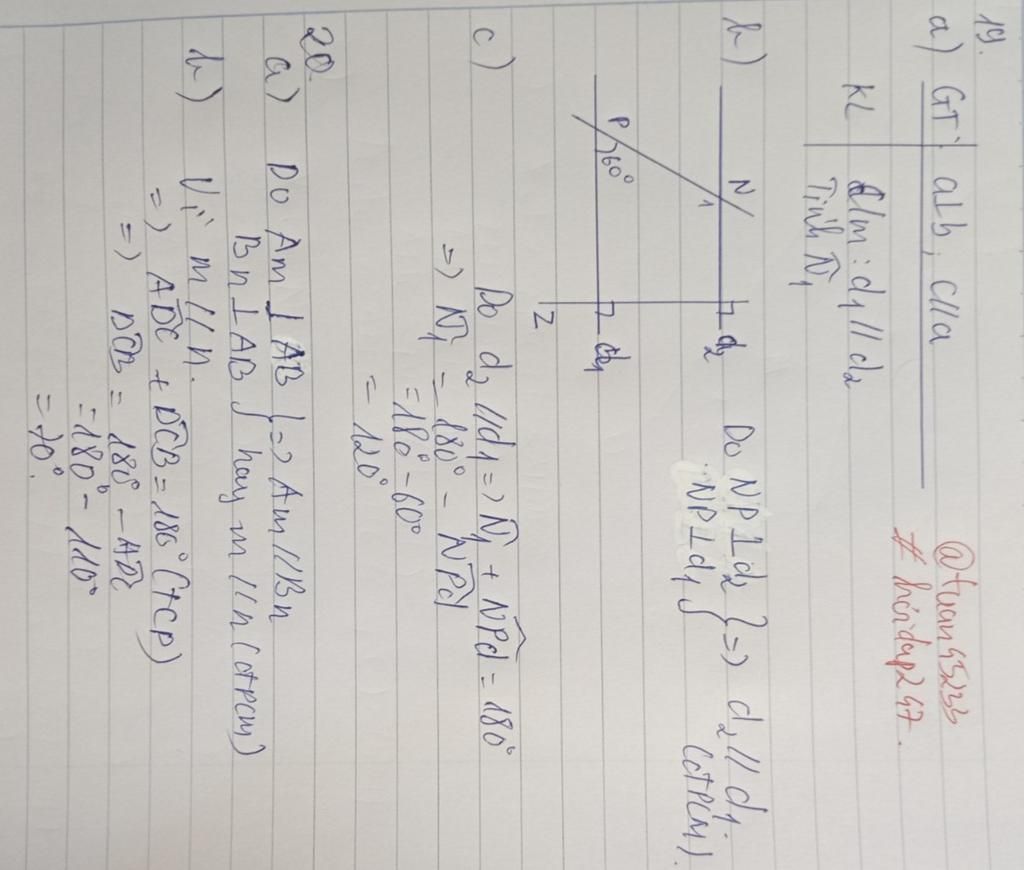 19.
a) GT: a⊥b, c//a
KL c/m: d₁//d₂
Tính N̂₁
@tuan45233
# hoidap247.
b)
N
1
d₂
P
60°
d₁
z
Do NP⊥d₂
NP⊥d₁ } => d₂//d₁.
(đPCM).
c) Do d₂//d₁ => N̂₁ + NPd = 180°
=> N̂₁ = 180° - NPd
= 180° - 60°
= 120°
20.
a) Do Am ⊥ AB
Bn ⊥ AB } => Am//Bn
hay m//n (đPCM)
b) Vì m//n.
=> ADC + DCB = 180° (TCP)
=> DCB = 180° - ADC
= 180° - 110°
= 70°.